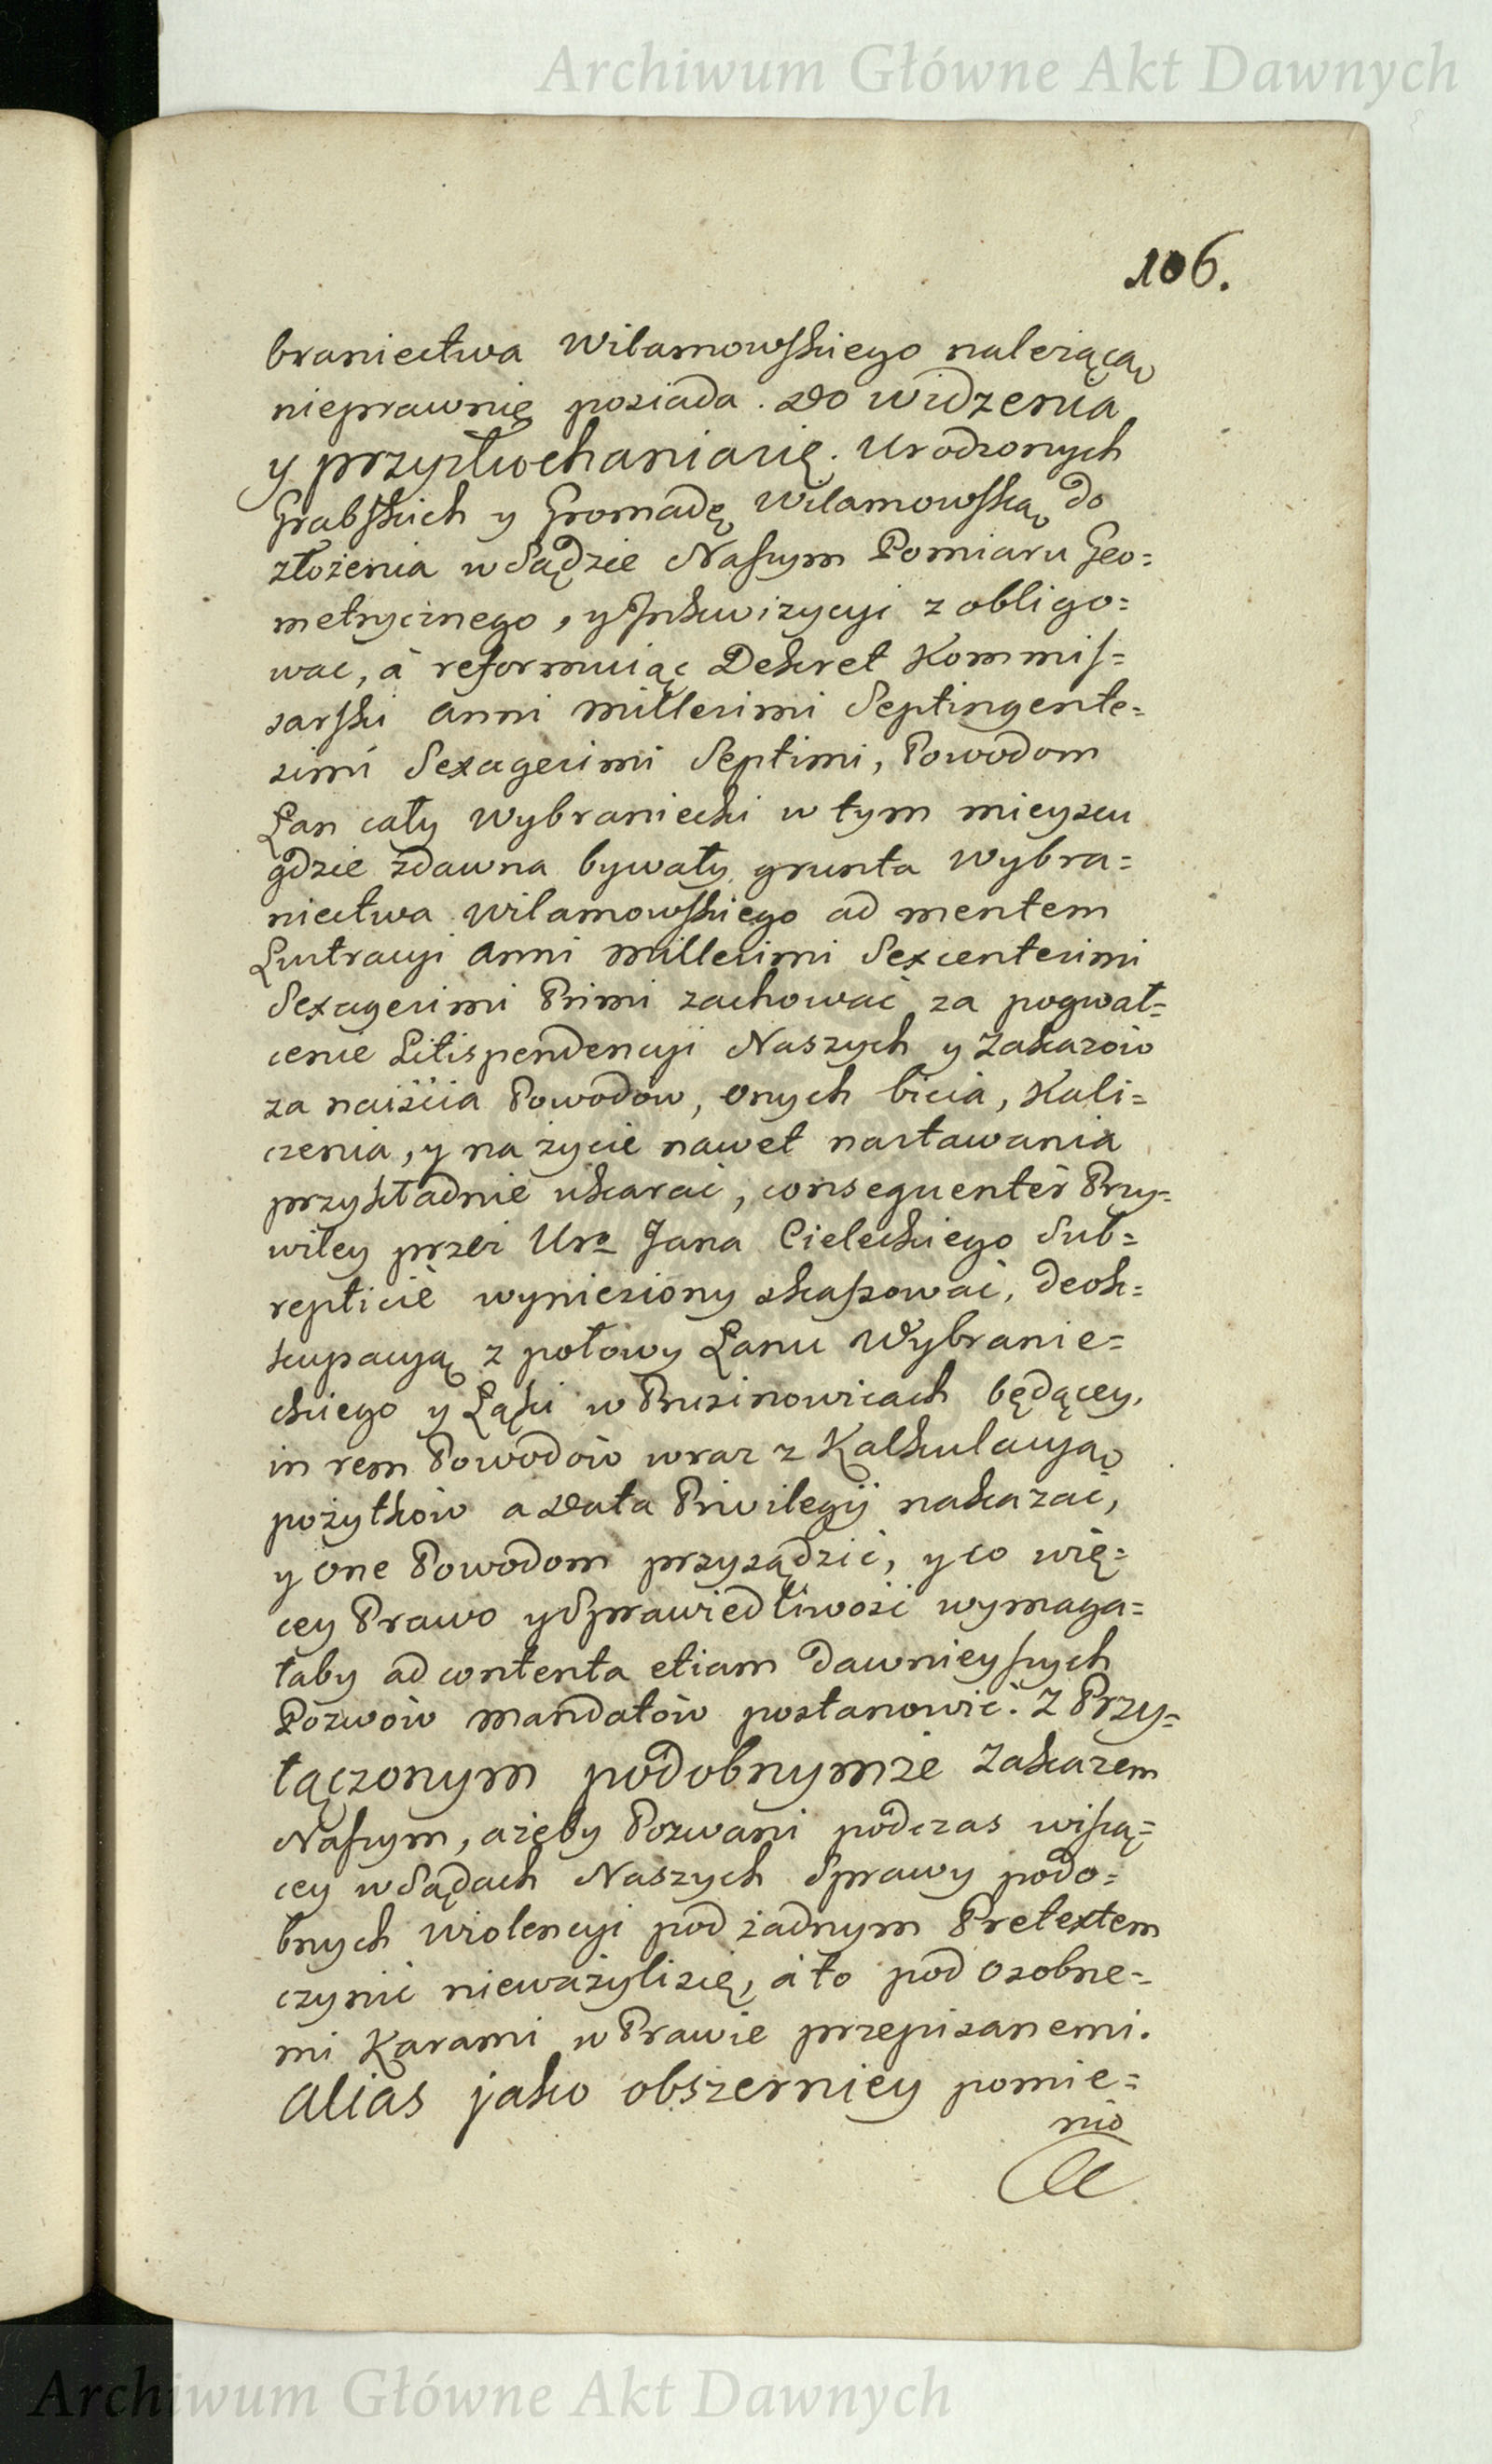 Archiwum Główne Akt Dawnych
106.
braniectwa Wilamowskiego należącą
nieprawnię posiada. Do widzenia
y przysłuchaniasię. Urodzonych
Grabskich y Gromadę Wilamowską do
złożenia w Sądzie Naszym Pomiaru Geo=
metrycznego, y Inkwizycyi z obligo=
wać, á reformuiąc Dekret Kommis=
sarski Anni Millesimi Septingente=
simi Sexagesimi Septimi, Powodom
Łan cały Wybraniecki w tym mieyscu
gdzie zdawna bywały grunta Wybra=
niectwa Wilamowskiego ad mentem
Lustracyi Anni Millesimi Sexcentesimi
Sexagesimi Primi zachować za pogwał=
cenie Litispendencyi Naszych y Zakazów
za naiścia Powodow, onych bicia, Kali=
czenia, y na życie nawet nastawania
przykładnie ukarać, consequentèr Przy=
wiley przez Uro Jana Cieleckiego Sub=
repticiè wyniesiony skassować, deok=
kupacyą z połowy Łanu Wybranie=
ckiego y Łąki w Rusinowicach będącey,
in rem Powodów wraz z Kalkulacyą
pożytków a Data Privilegij nakazać,
y one Powodom przysądzić, y co wię=
cey Prawo y Sprawiedliwość wymaga=
łaby ad contenta etiam dawnieyszych
Pozwów Mandatów postanowić. Z Przy=
łączonym podobnymże Zakazem
Naszym, ażeby Pozwani podczas wiszą=
cey w Sądach Naszych Sprawy podo=
bnych Violencyi pod żadnym Pretextem
czynić nieważylisię, á to pod osobne=
mi Karami w Prawie przepisanemi.
Alias jako obszerniey pomie=
nio
Archiwum Główne Akt Dawnych